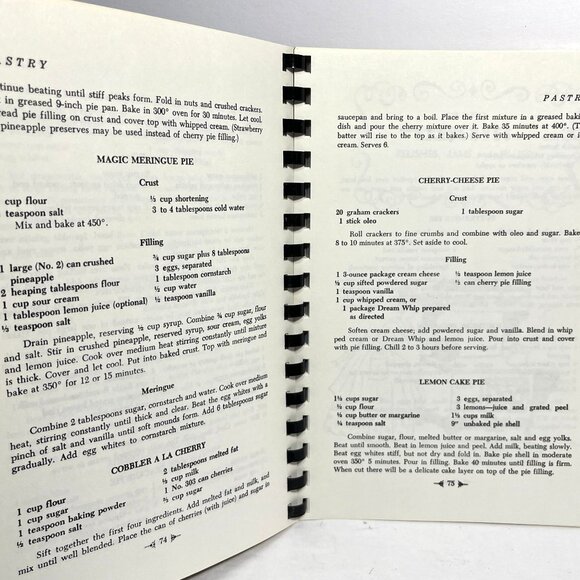 ASTRY
tinue beating until stiff peaks form. Fold in nuts and crushed crackers.
in greased 9-inch pie pan. Bake in 300° oven for 30 minutes. Let cool.
read pie filling on crust and cover top with whipped cream. (Strawberry
pineapple preserves may be used instead of cherry pie filling.)
MAGIC MERINGUE PIE
Crust
cup flour ⅓ cup shortening
teaspoon salt 3 to 4 tablespoons cold water
Mix and bake at 450°.
Filling
1 large (No. 2) can crushed ¾ cup sugar plus 8 tablespoons
pineapple 3 eggs, separated
2 heaping tablespoons flour 1 tablespoon cornstarch
1 cup sour cream ½ cup water
1 tablespoon lemon juice (optional) ½ teaspoon vanilla
½ teaspoon salt
Drain pineapple, reserving ½ cup syrup. Combine ¾ cup sugar, flour
and salt. Stir in crushed pineapple, reserved syrup, sour cream, egg yolks
and lemon juice. Cook over medium heat stirring constantly until mixture
is thick. Cover and let cool. Put into baked crust. Top with meringue and
bake at 350° for 12 or 15 minutes.
Meringue
Combine 2 tablespoons sugar, cornstarch and water. Cook over medium
heat, stirring constantly until thick and clear. Beat the egg whites with a
pinch of salt and vanilla until soft mounds form. Add 6 tablespoons sugar
gradually. Add egg whites to cornstarch mixture.
COBBLER A LA CHERRY
1 cup flour 2 tablespoons melted fat
1 cup sugar ½ cup milk
1 teaspoon baking powder 1 No. 303 can cherries
½ teaspoon salt ½ cup sugar
Sift together the first four ingredients. Add melted fat and milk, and
mix until well blended. Place the can of cherries (with juice) and sugar in
74
PASTR
saucepan and bring to a boil. Place the first mixture in a greased baki
dish and pour the cherry mixture over it. Bake 35 minutes at 400°. (T
batter will rise to the top as it bakes.) Serve with whipped cream or i
cream. Serves 6.
CHERRY-CHEESE PIE
Crust
20 graham crackers 1 tablespoon sugar
1 stick oleo
Roll crackers to fine crumbs and combine with oleo and sugar. Bake
8 to 10 minutes at 375°. Set aside to cool.
Filling
1 3-ounce package cream cheese ½ teaspoon lemon juice
½ cup sifted powdered sugar ½ can cherry pie filling
1 teaspoon vanilla
1 cup whipped cream, or
1 package Dream Whip prepared
as directed
Soften cream cheese; add powdered sugar and vanilla. Blend in whip
ped cream or Dream Whip and lemon juice. Pour into crust and cover
with pie filling. Chill 2 to 3 hours before serving.
LEMON CAKE PIE
1½ cups sugar 3 eggs, separated
¾ cup flour 3 lemons—juice and grated peel
½ cup butter or margarine 1½ cups milk
¼ teaspoon salt 9" unbaked pie shell
Combine sugar, flour, melted butter or margarine, salt and egg yolks.
Beat until smooth. Beat in lemon juice and peel. Add milk, beating slowly.
Beat egg whites stiff, but not dry and fold in. Bake pie shell in moderate
oven 350° 5 minutes. Pour in filling. Bake 40 minutes until filling is firm.
When cut there will be a delicate cake layer on top of the pie filling.
75